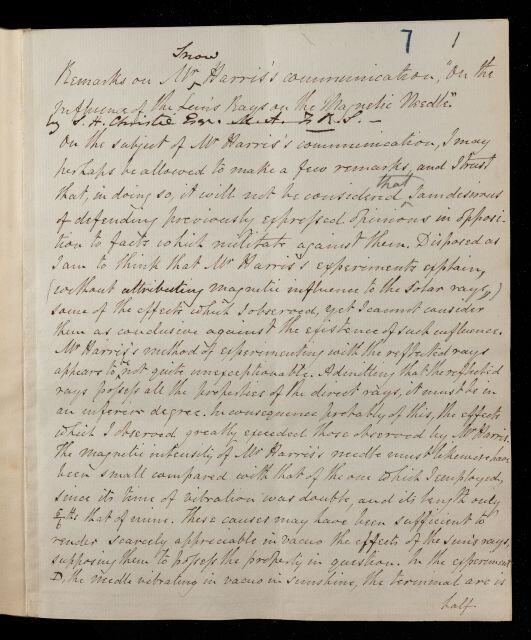 7 1
Snow
Remarks on Mr ^ Harris's communication, "On the
Influence of the Suns Rays on the Magnetic Needle".
by S. H. Christie Esqr. M. A. F. R. S. —
On the subject of Mr Harris's communication, I may
perhaps be allowed to make a few remarks, and I trust
that
that, in doing so, it will not be considered ^ I am desirous
of defending previously expressed opinions in opposi-
tion to facts which militate against them. Disposed as
I am to think that Mr Harris's experiments explain,
(without attributing magnetic influence to the solar rays,)
some of the effects which I observed, yet I cannot consider
them as conclusive against the existence of such influence.
Mr Harris's method of experimenting with the reflected rays
appears to be not quite unexceptionable. Admitting that the reflected
rays possess all the properties of the direct rays, it must be in
an inferior degree. In consequence probably of this, the effects
which I observed greatly exceeded those observed by Mr Harris.
The magnetic intensity of Mr Harris's needle must likewise have
been small compared with that of the one which I employed,
since its time of vibration was double, and its length only
5/6ths that of mine. These causes may have been sufficient to
render scarcely appreciable in vacuo the effects of the sun's rays,
supposing them to possess the property in question. In the experiment
D, the needle vibrating in vacuo in sunshine, the terminal arc is
half